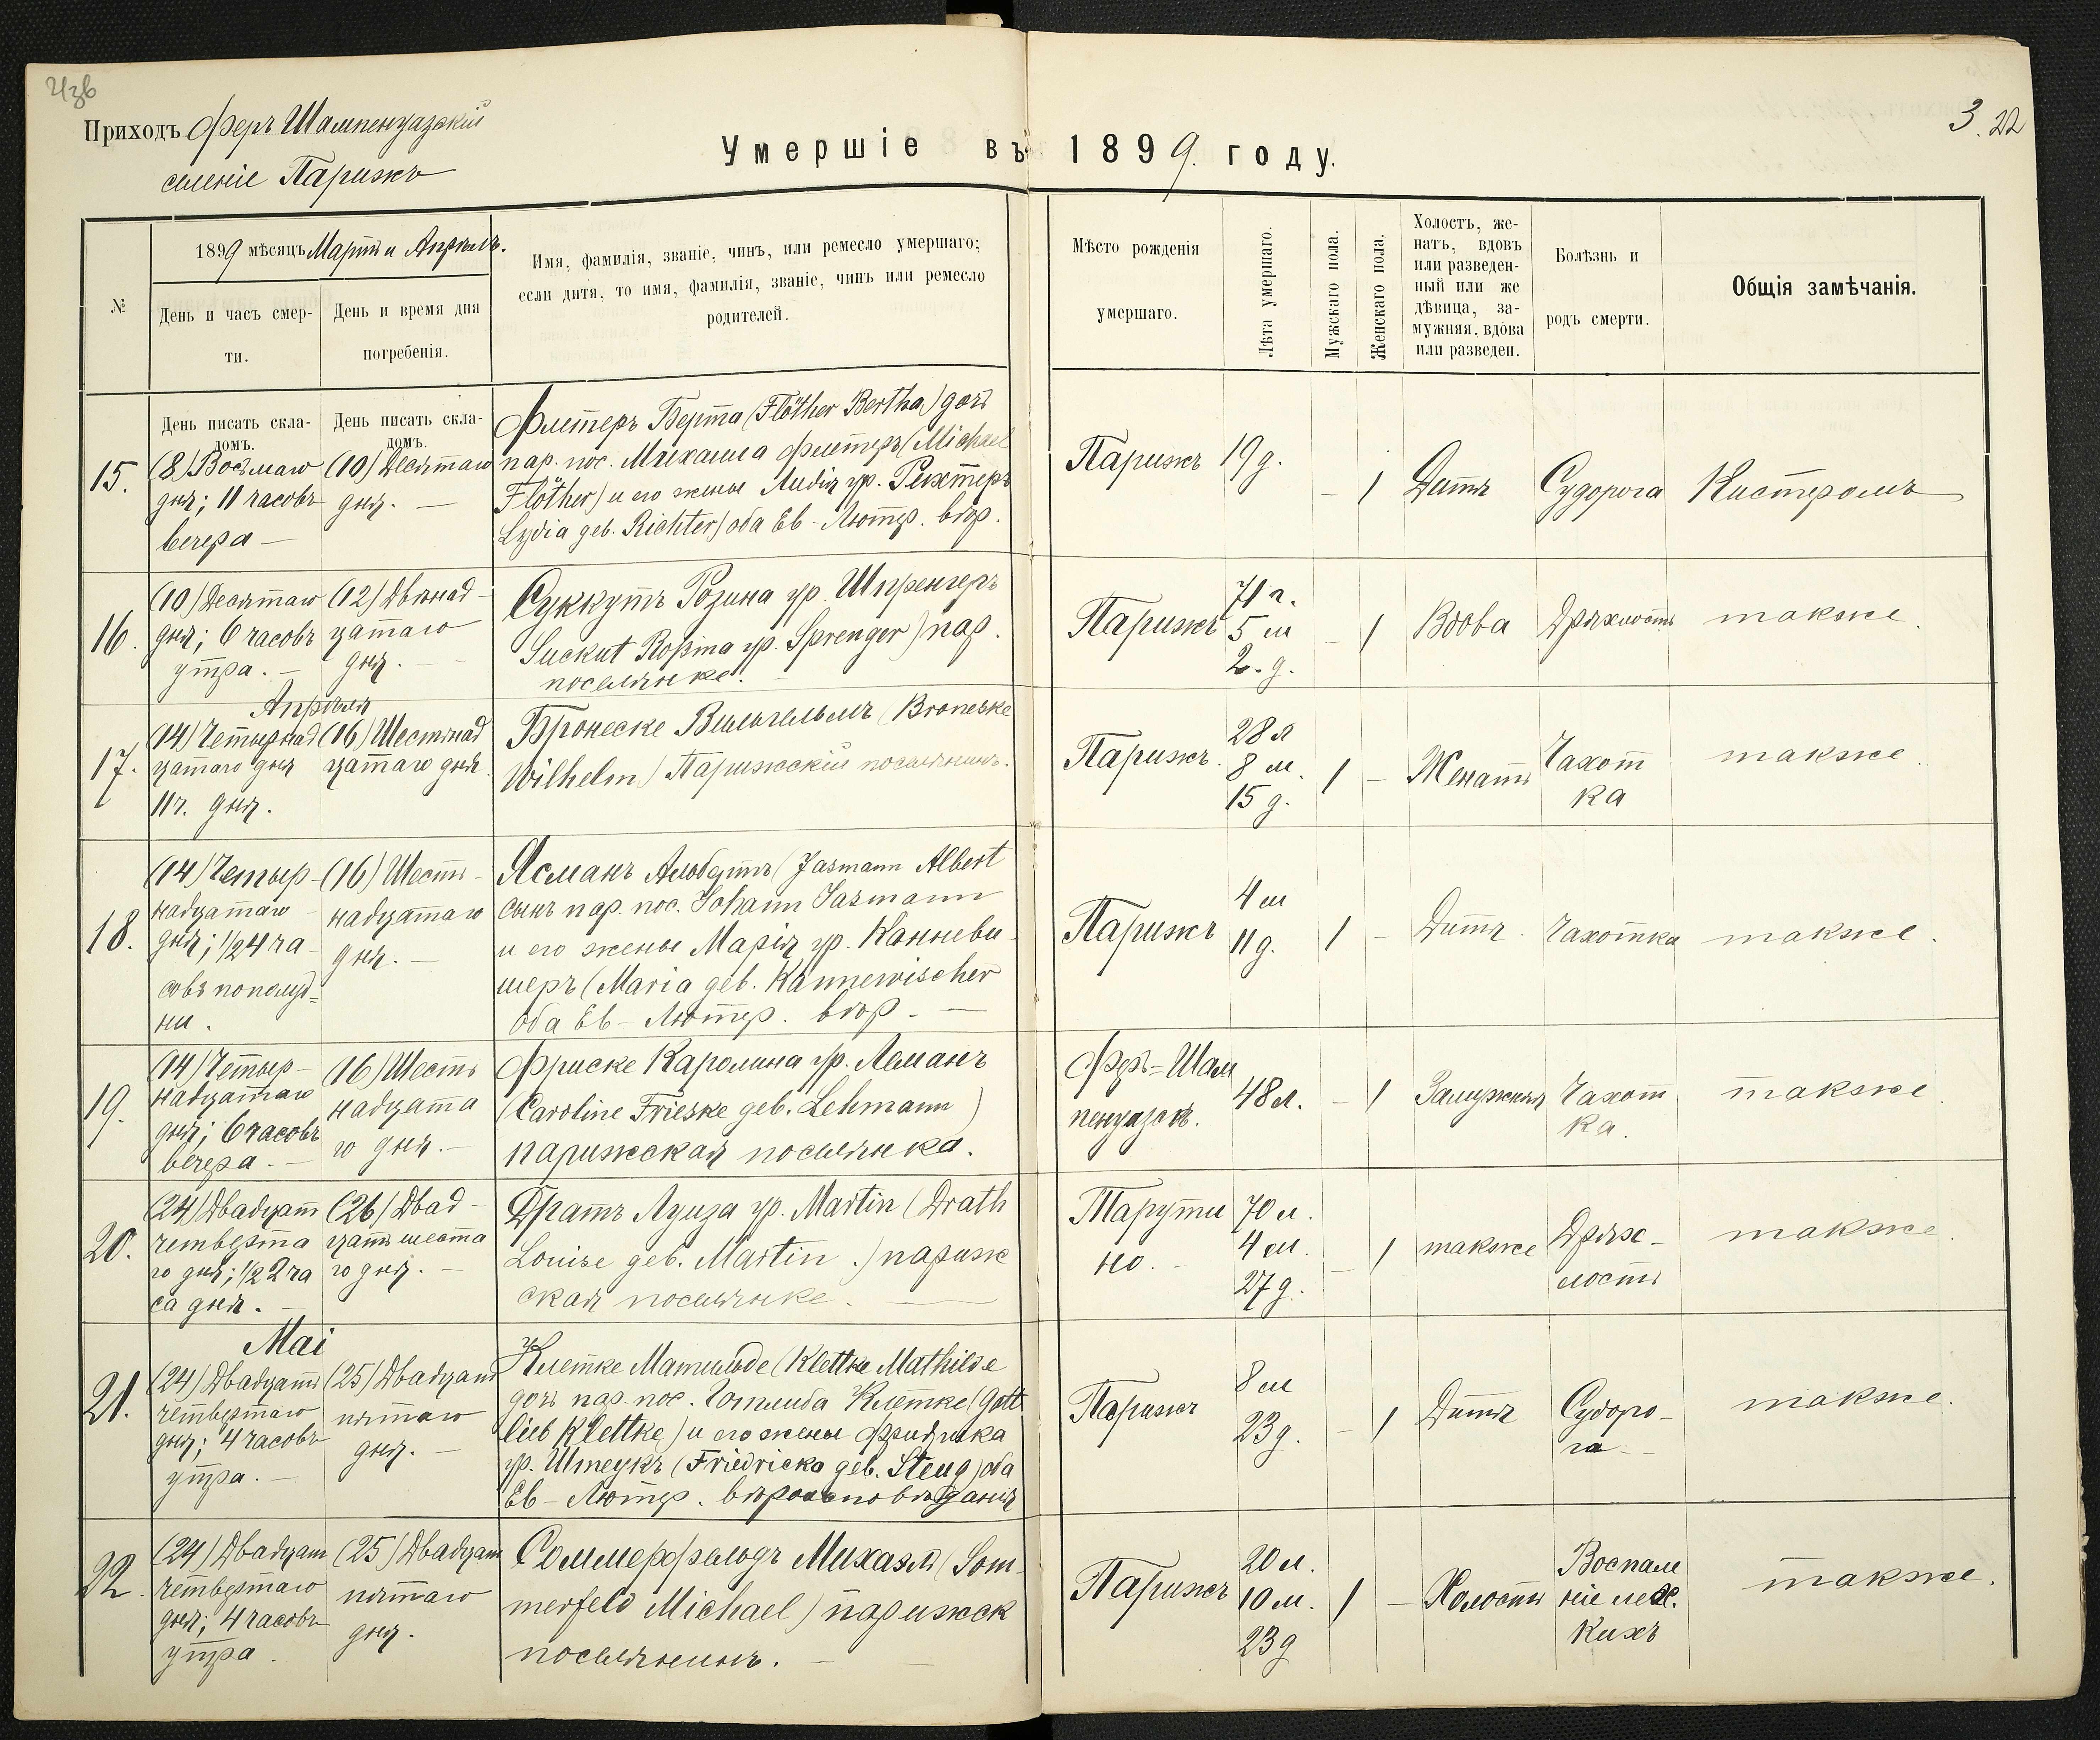 Изв
Приходъ Феръ Шампенуазскій
селеніе Парижъ
3. 22
Умершіе въ 1899. году.
№
1899 мѣсяцъ Мартъ и Апрѣль.
День и часъ смер-
ти.
День и время дня
погребенія.
Имя, фамилія, званіе, чинъ, или ремесло умершаго;
если дитя, то имя, фамилія, званіе, чинъ или ремесло
родителей.
Мѣсто рожденія
умершаго.
Лѣта умершаго.
Мужскаго пола.
Женскаго пола.
Холостъ, же-
натъ, вдовъ
или разведен-
ный или же
дѣвица, за-
мужняя, вдова
или разведен.
Болѣзнь и
родъ смерти.
Общія замѣчанія.
День писать скла-
домъ.
День писать скла-
домъ.
15.
(8) Восьмаго
дня; 11 часовъ
вечера —
(10) Десятаго
дня. —
Флетеръ Берта (Flöther Bertha) дочь
пар. пос. Михаила Флетеръ (Michael
Flöther) и его жены Лидія ур. Рихтеръ
Lydia geb. Richter) оба Ев-Лютер. вѣр.
Парижъ
19 д.
– 1
Дитя
Судорога
Кистеромъ
16.
(10) Десятаго
дня; 6 часовъ
утра. —
(12) Двѣнад-
цатаго
дня. —
Суккутъ Розина ур. Шпренгеръ
Suckut Rosina ур. Sprenger) пар.
поселянке. –
Парижъ
71 г.
5 м
2 – д.
– 1
Вдова
Дряхлость
также.
Апрѣля
17.
(14) Четырнад
цатаго дня
11 ч. дня.
(16) Шестнад
цатаго дня.
Бронеске Вильгельмъ (Broneske
Wilhelm) Парижскій поселянинъ.
Парижъ.
28 л
8 м.
15 д.
1 –
Женатъ
Чахот
ка
также.
18.
(14) Четыр-
надцатаго
дня; 1/2 4 ча-
совъ пополуд=
ни.
(16) Шест-
надцатаго
дня. —
Ясманъ Альбертъ (Jasmann Albert
сынъ пар. пос. Johann Jasmann
и его жены Марія ур. Канневи-
шеръ (Maria geb. Kannewischer
оба Ев-Лютер. вѣр. —
Парижъ
4 м
11 д.
1 –
Дитя.
Чахотка
также.
19.
(14) Четыр-
надцатаго
дня; 6 часовъ
вечера. —
(16) Шесть
надцата
го дня. —
Фриске Каролина ур. Леманъ
(Caroline Frieske geb. Lehmann)
парижская поселянка.
Феръ=Шам
пенуазск.
48 л.
– 1
Замужняя
Чахот
ка.
также.
20.
(24) Двадцат
четверта
го дня; 1/2 2 ча
са дня. —
(26) Двад-
цать шеста
го дня. —
Дратъ Луиза ур. Martin (Drath
Louise geb. Martin.) париж
ская поселянке. —
Тарути
но. –
70 л.
4 м.
27 д.
– 1
также
Дрях-
лость
также.
Mai
21.
(24) Двадцать
четвертаго
дня; 4 часовъ
утра. —
(25) Двадцать
пятаго
дня. —
Клетке Матильде (Klettke Mathilde
дочь пар. пос. Готлиба Клетке (Gott
lieb Klettke) и его жены Фридрика
ур. Штеукъ (Friedricka geb. Steug) оба
Ев-Лютер. вѣроисповѣданія
Парижъ
8 м
23 д.
– 1
Дитя
Судоро-
га –
также.
22.
(24) Двадцат
четвертаго
дня; 4 часовъ
утра.
(25) Двадцат
пятаго
дня.
Соммерфельдъ Михаэл (Som-
merfeld Michael) парижск
поселянинъ. –
Парижъ
20 л.
10 м.
23 д
1 –
Холостъ
Воспале
ніе лех.
кихъ
также.